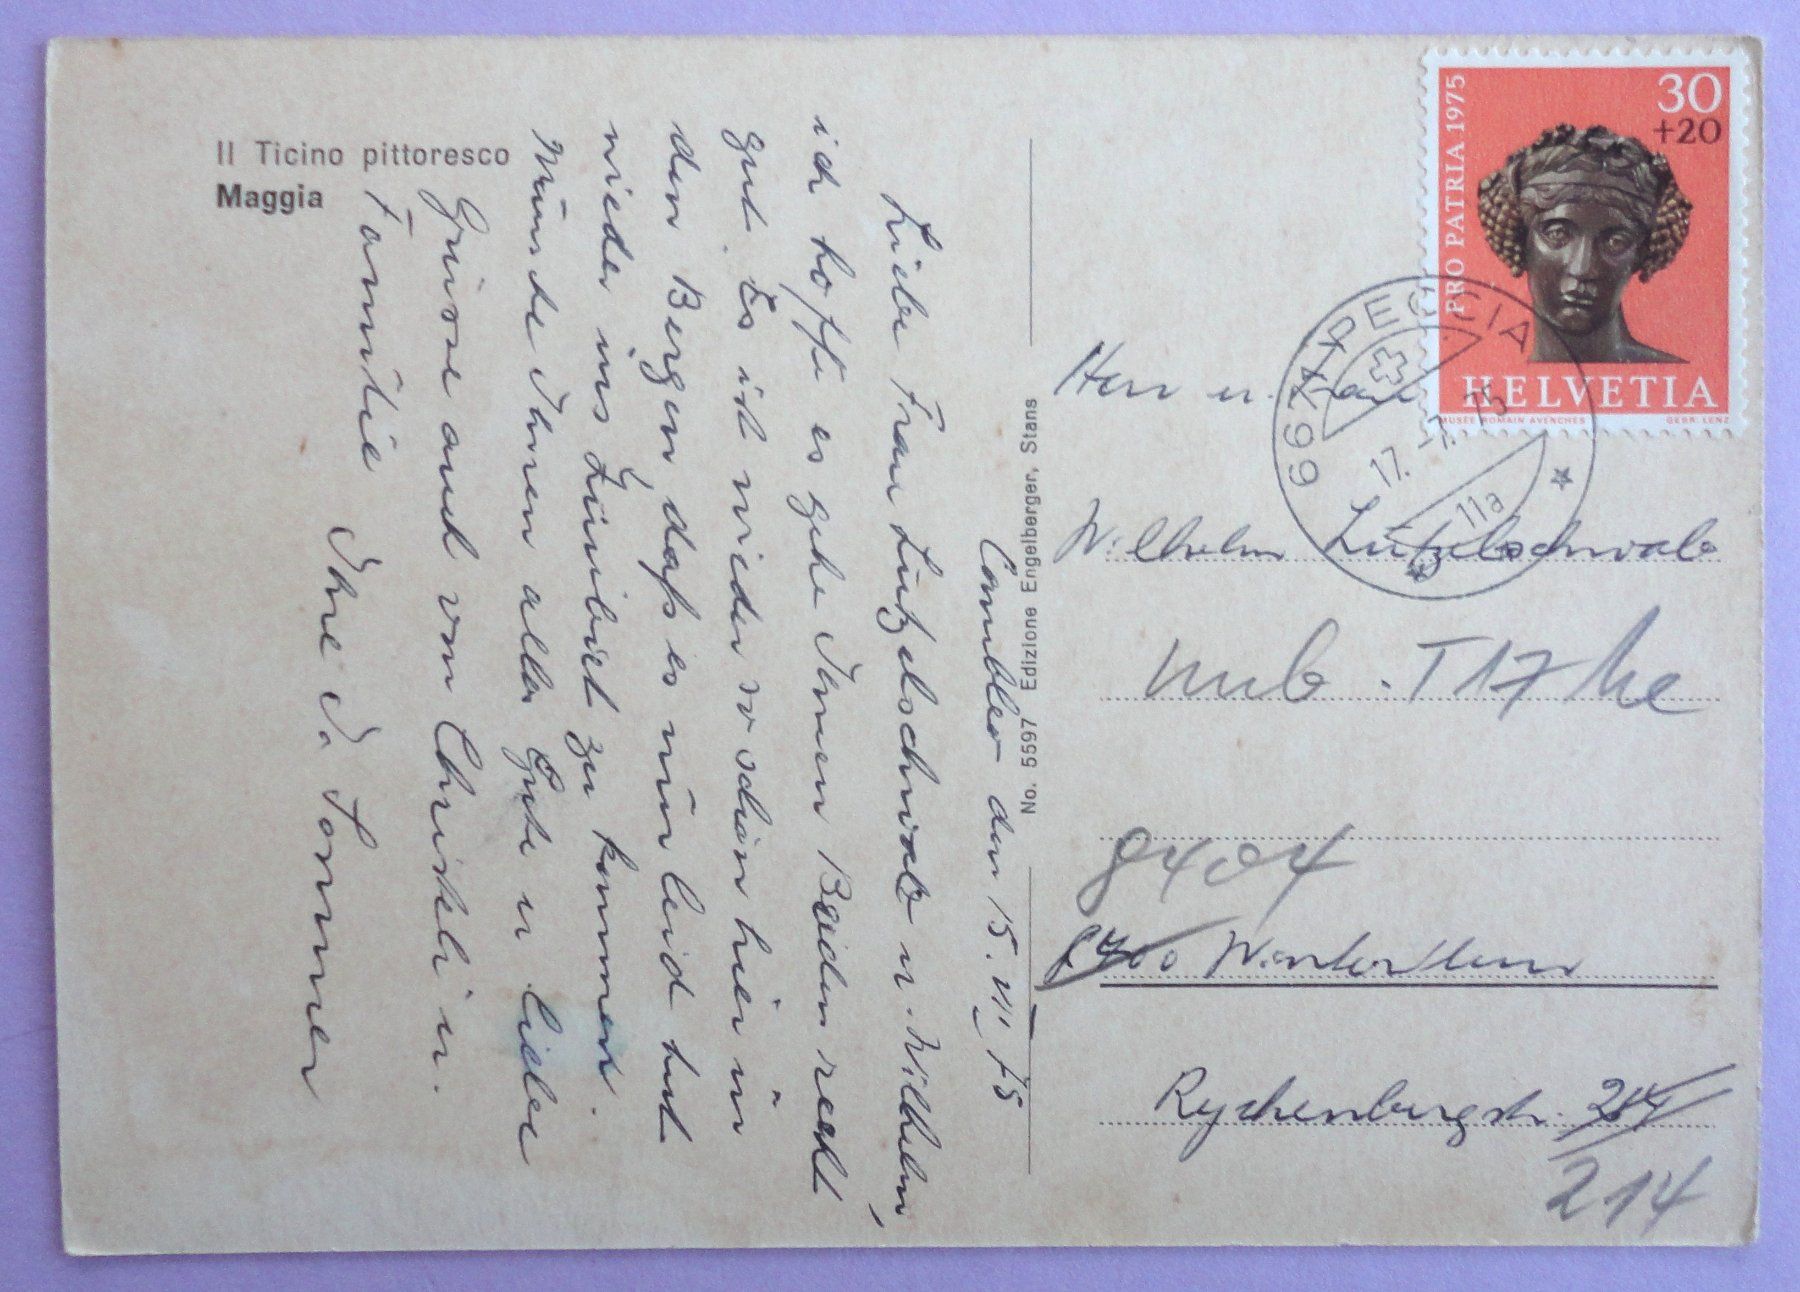 Il Ticino pittoresco
Maggia
Combleo den 15. VII 75
Liebe Frau Lützelschwab u. Wilhelm,
ich hoffe es gehe Ihnen Beiden recht
gut. Es ist wieder so schön hier in
den Bergen, dass es mir leid tut
wieder ins Züribiet zu kommen.
Wünsche Ihnen alles Gute u. liebe
Grüsse auch von Christeli u.
Familie
Ihre I. Sommer
No. 5597 Edizione Engelberger, Stans
30
+20
PRO PATRIA 1975
HELVETIA
MUSÉE ROMAIN AVENCHES
GEBR. LENZ
6671 PECCIA
17.-7.75
11a
Herr u. Frau
Wilhelm Lützelschwab
unb. T 17 he
8404
8400 Winterthur
Rychenbergstr.
214